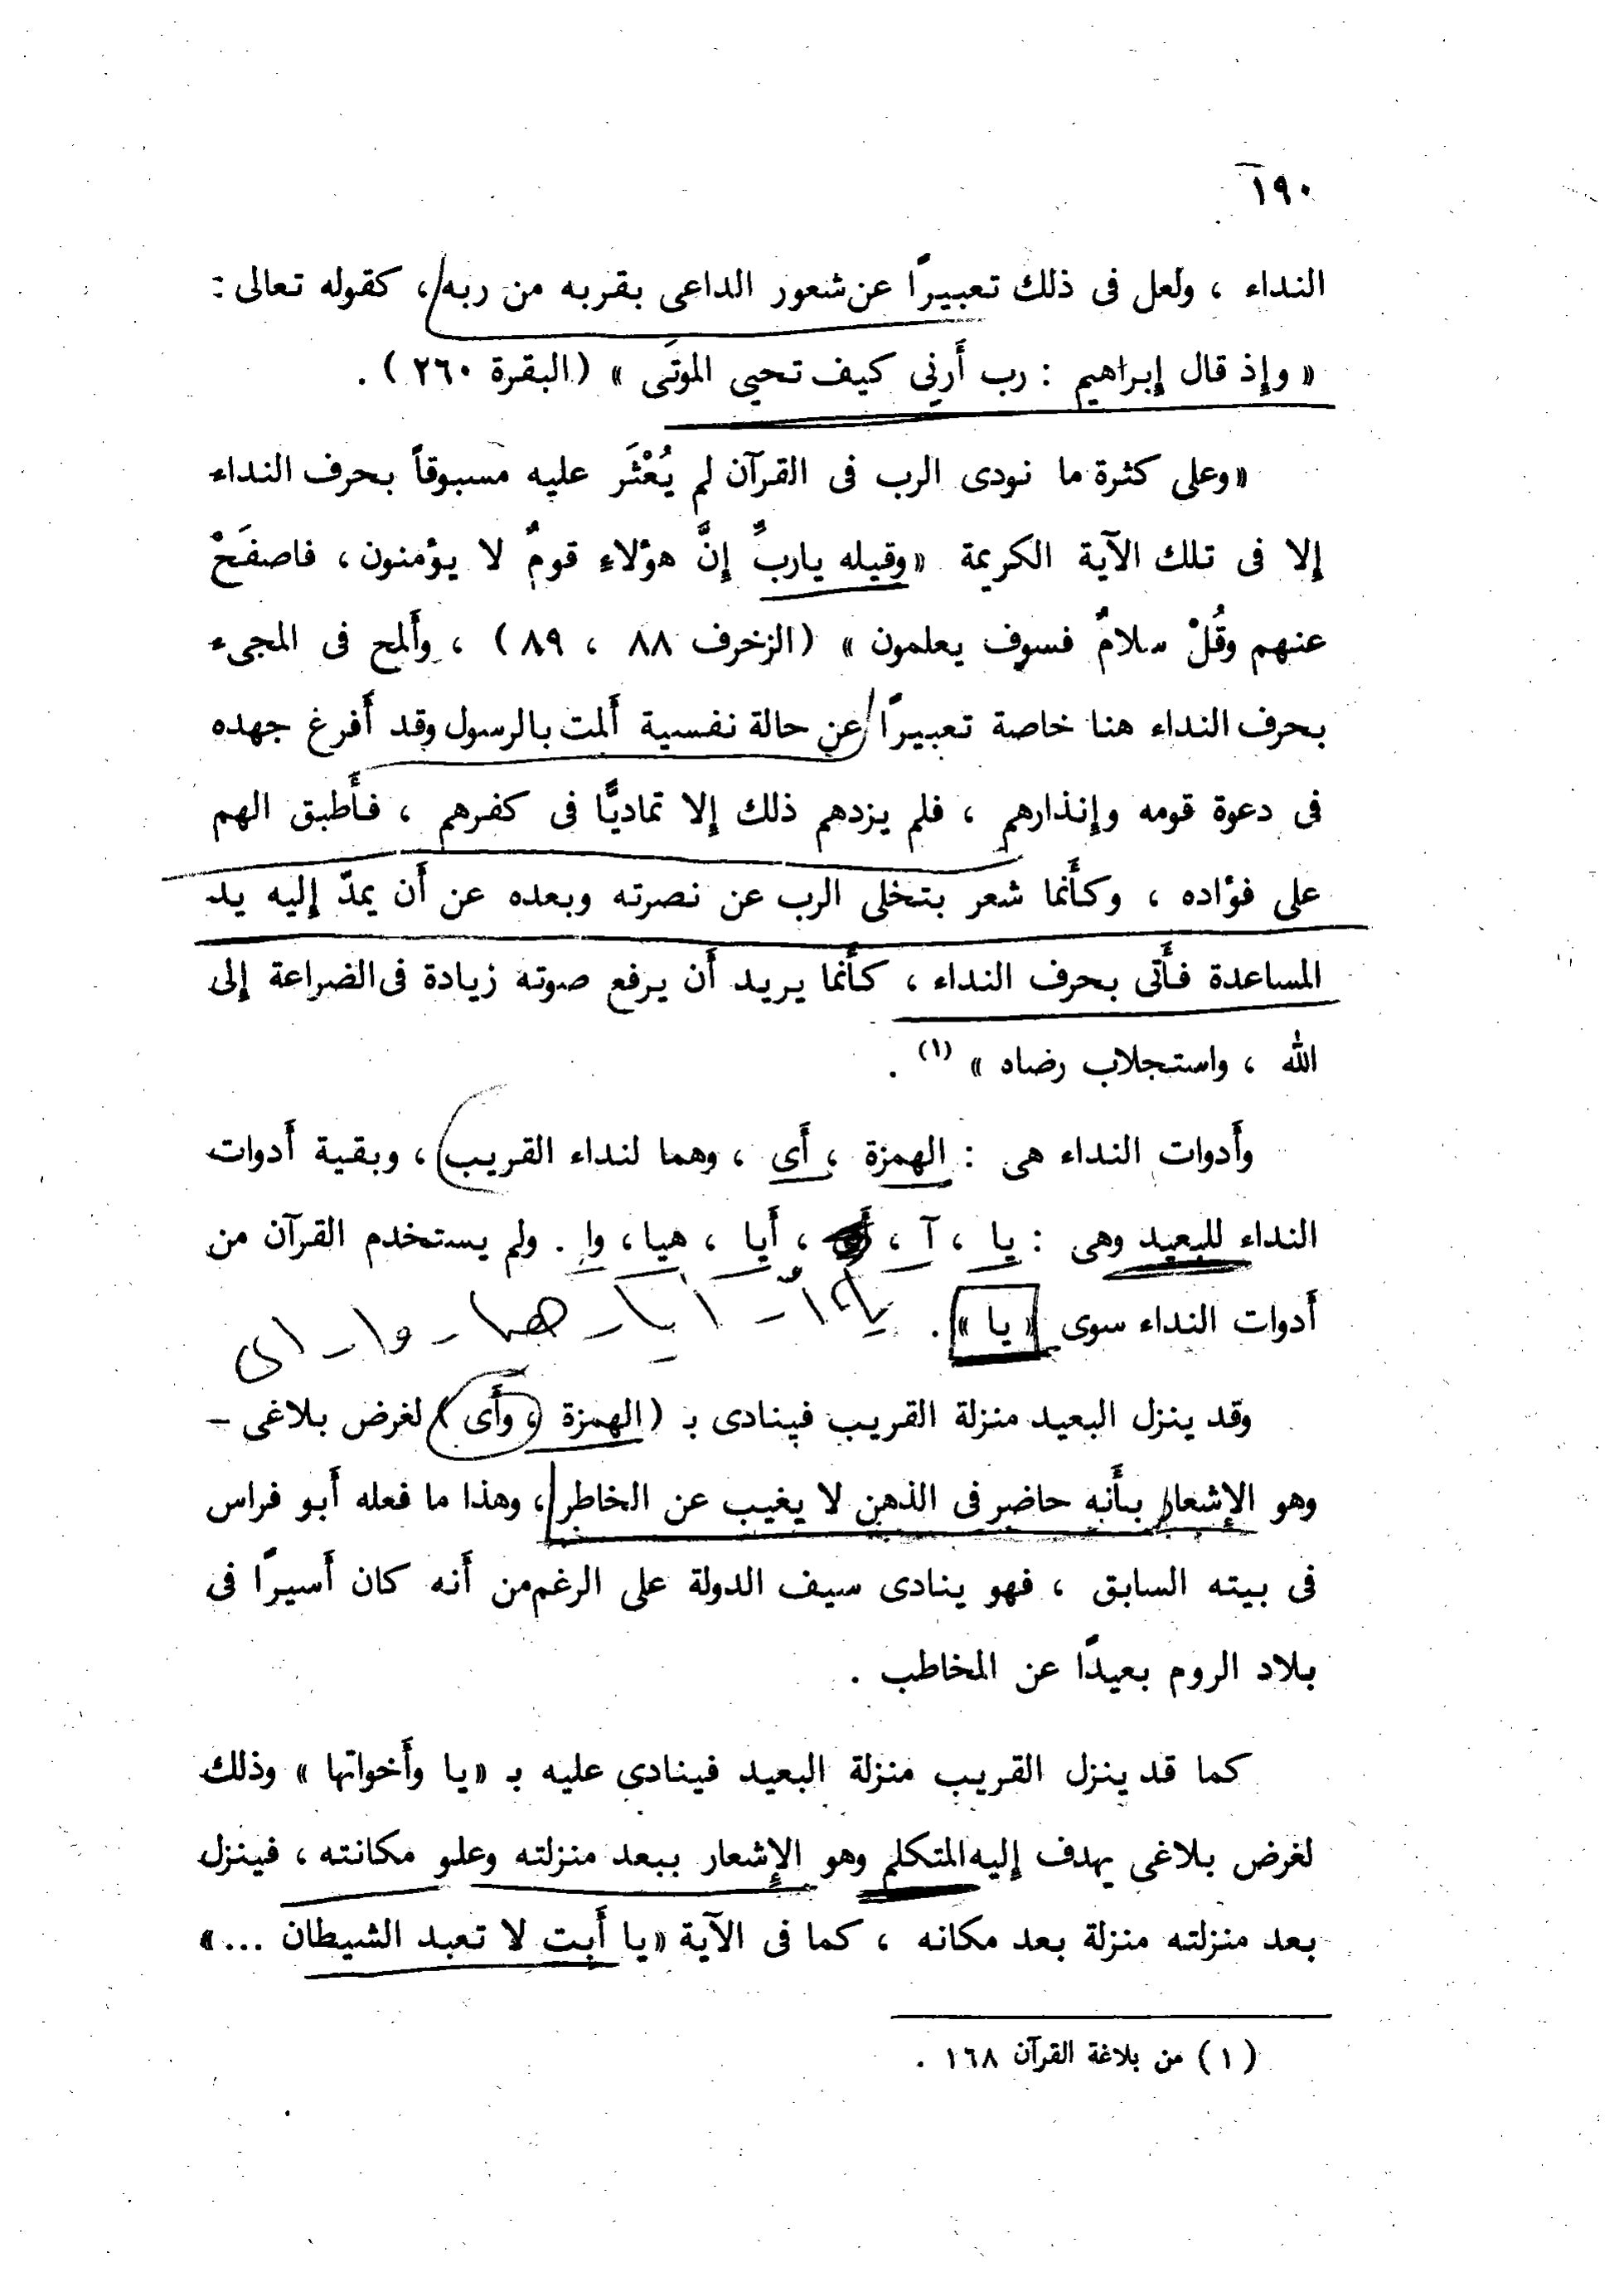 ١٩٠
النداء ، ولعل فى ذلك تعبيرًا عن شعور الداعى بقربه من ربه ، كقوله تعالى :
« وإذ قال إبراهيم : رب أَرنِى كيف تحيى الموتَى » (البقرة ٢٦٠ ) .
«وعلى كثرة ما نودى الرب فى القرآن لم يُعْثَر عليه مسبوقاً بحرف النداء
إلا فى تلك الآية الكريمة «وقيله ياربِّ إنَّ هؤلاءِ قومٌ لا يؤمنون ، فاصفَحْ
عنهم وقُلْ سلامٌ فسوف يعلمون » (الزخرف ٨٨ ، ٨٩ ) ، وأَلمح فى المجىء
بحرف النداء هنا خاصة تعبيرًا عن حالة نفسية أَلمت بالرسول وقد أَفرغ جهده
فى دعوة قومه وإنذارهم ، فلم يزدهم ذلك إلا تماديًّا فى كفرهم ، فأَطبق الهم
على فؤاده ، وكأَنما شعر بتخلى الرب عن نصرته وبعده عن أَن يمدّ إليه يد
المساعدة فأَتى بحرف النداء ، كأَنما يريد أَن يرفع صوته زيادة فى الضراعة إلى
الله ، واستجلاب رضاه » (١) .
وأَدوات النداء هى : الهمزة ، أَى ، وهما لنداء القريب ، وبقية أَدوات
النداء للبعيد وهى : يا ، آ ، ، أَيا ، هيا ، وا . ولم يستخدم القرآن من
أَدوات النداء سوى « يا » .
أيا - هيا - وا - اى
وقد ينزل البعيد منزلة القريب فينادى بـ (الهمزة ، وأَى ) لغرض بلاغى -
وهو الإشعار بأَنه حاضر فى الذهن لا يغيب عن الخاطر ، وهذا ما فعله أَبو فراس
فى بيته السابق ، فهو ينادى سيف الدولة على الرغم من أَنه كان أَسيرًا فى
بلاد الروم بعيدًا عن المخاطب .
كما قد ينزل القريب منزلة البعيد فينادى عليه بـ «يا وأَخواتها » وذلك
لغرض بلاغى يهدف إليه المتكلم وهو الإشعار ببعد منزلته وعلو مكانته ، فينزل
بعد منزلته منزلة بعد مكانه ، كما فى الآية «يا أَبت لا تعبد الشيطان ...»
(١) من بلاغة القرآن ١٦٨ .